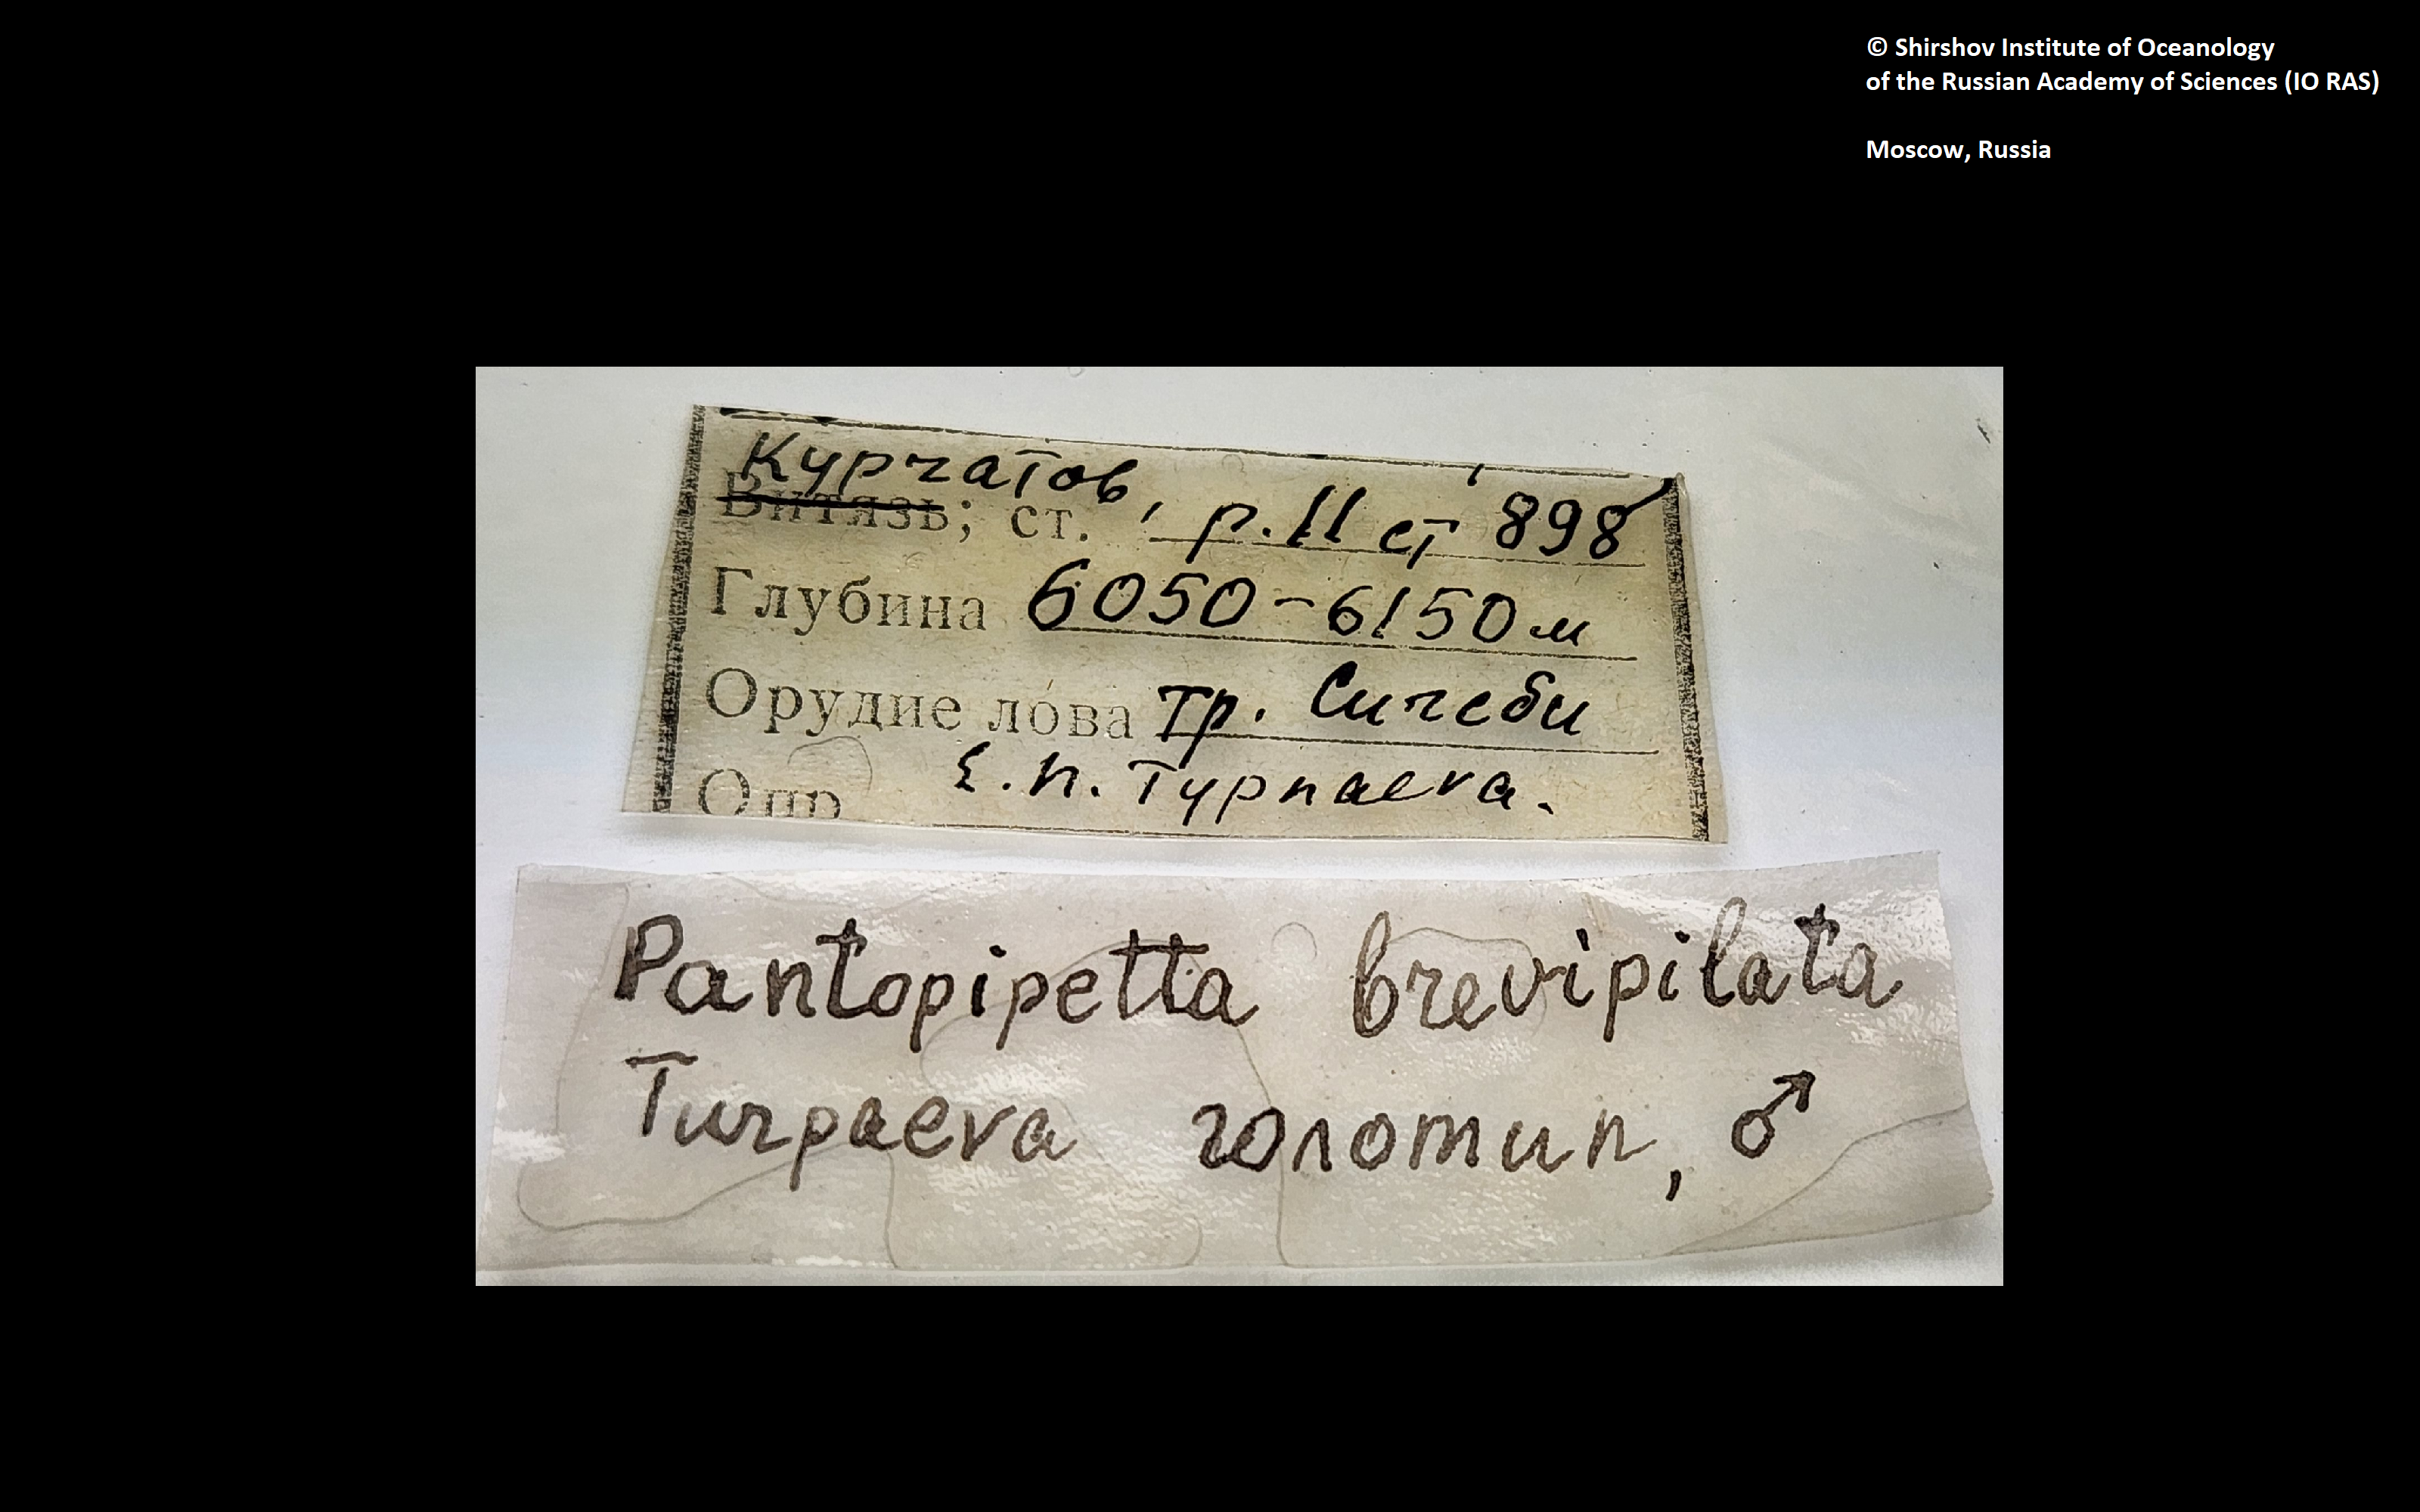 © Shirshov Institute of Oceanology
of the Russian Academy of Sciences (IO RAS)
Moscow, Russia
Курчатов,
Витязь; ст. р. 11 ст 898
Глубина 6050-6150 м
Орудие лова Тр. Сигсби
Опр Е.П. Турпаева.
Pantopipetta brevipilata
Turpaeva голотип, ♂